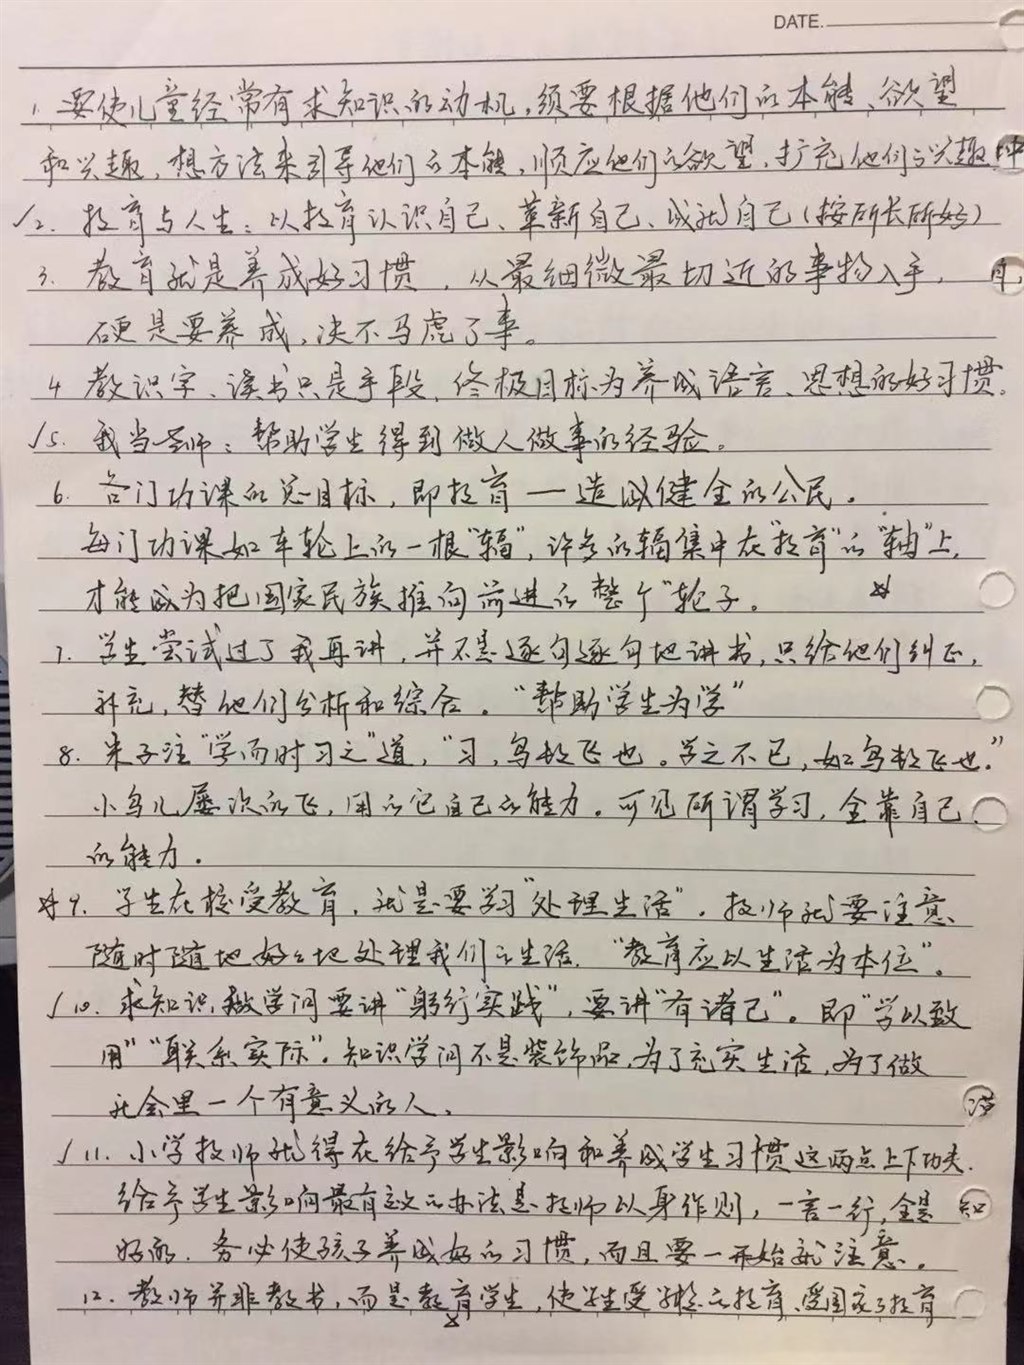 DATE.
1. 要使儿童经常有求知识的动机，须要根据他们的本能、欲望
和兴趣，想方法来引导他们的本能，顺应他们的欲望，扩充他们的兴趣
√2. 教育与人生：以教育认识自己、革新自己、成就自己（按所长所好）
3. 教育就是养成好习惯，从最细微最切近的事物入手，
硬是要养成，决不马虎了事。
4 教识字、读书只是手段，终极目标为养成语言、思想的好习惯。
√5. 我当老师：帮助学生得到做人做事的经验。
6. 各门功课的总目标，即教育—造成健全的公民。
每门功课如车轮上的一根“辐”，许多的辐集中在“教育”的“轴”上，
才能成为把国家民族推向前进的整个“轮子。
7. 学生尝试过了我再讲，并不是逐句逐句地讲书，只给他们纠正，
补充，替他们分析和综合。“帮助学生为学”
8. 朱子注“学而时习之”道，“习，鸟数飞也。学之不已，如鸟数飞也。”
小鸟儿屡次的飞，用的它自己的能力。可见所谓学习，全靠自己
的能力。
9. 学生在校受教育，就是要学习“处理生活”。教师就要注意、
随时随地好好地处理我们的生活。“教育应以生活为本位”。
√10. 求知识，做学问要讲“躬行实践”，要讲“有诸己”。即“学以致
用”“联系实际”。知识学问不是装饰品，为了充实生活，为了做
社会里一个有意义的人、
√11. 小学教师就得在给予学生影响和养成学生习惯这两点上下功夫.
给予学生影响最有效的办法是教师以身作则，一言一行，全是 知
好的、务必使孩子养成好的习惯，而且要一开始就注意。
12. 教师并非教书，而是教育学生，使学生受学校的教育、受国家的教育